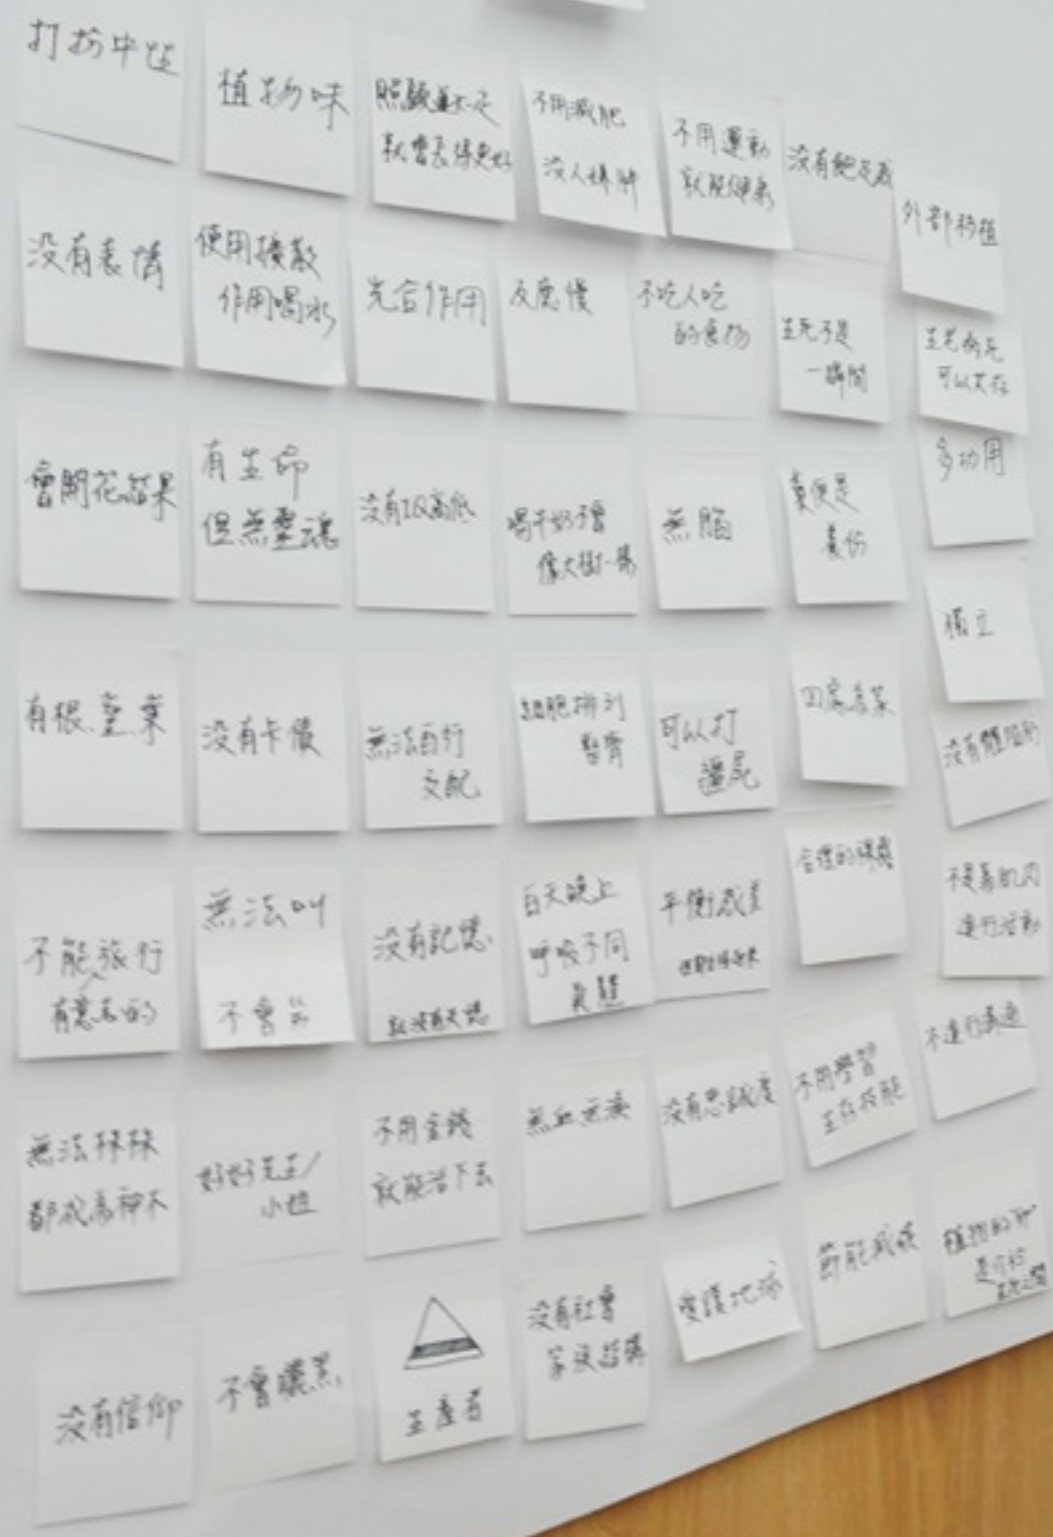 打扮中性
植物味
就會長得更好
不用減肥
沒人嫌胖
不用運動
就能健康
沒有飽足感
外部移植
沒有表情
使用擴散
作用喝水
光合作用
反應慢
不吃人吃
的食物
生死不是
一瞬間
生老病死
可以共存
會開花結果
有生命
但無靈魂
沒有IQ高低
喝牛奶不會
像大樹一樣
無腦
糞便是
養份
多功用
獨立
有根、莖、葉
沒有卡債
無法自行
交配
細胞排列
整齊
可以打
殭屍
四處為家
沒有體脂肪
不能旅行
有意志的
無法叫
不會
沒有記憶
就沒有失憶
白天晚上
呼吸不同
氣體
平衡感差
不是靠肌肉
進行活動
無法棵棵
都成為神木
好好先生/
小姐
不用金錢
就能活下去
無血無淚
沒有忠誠度
不用學習
生存技能
不進行溝通
沒有信仰
不會曬黑
生產者
沒有社會
家族結構
愛護地球
節能減碳